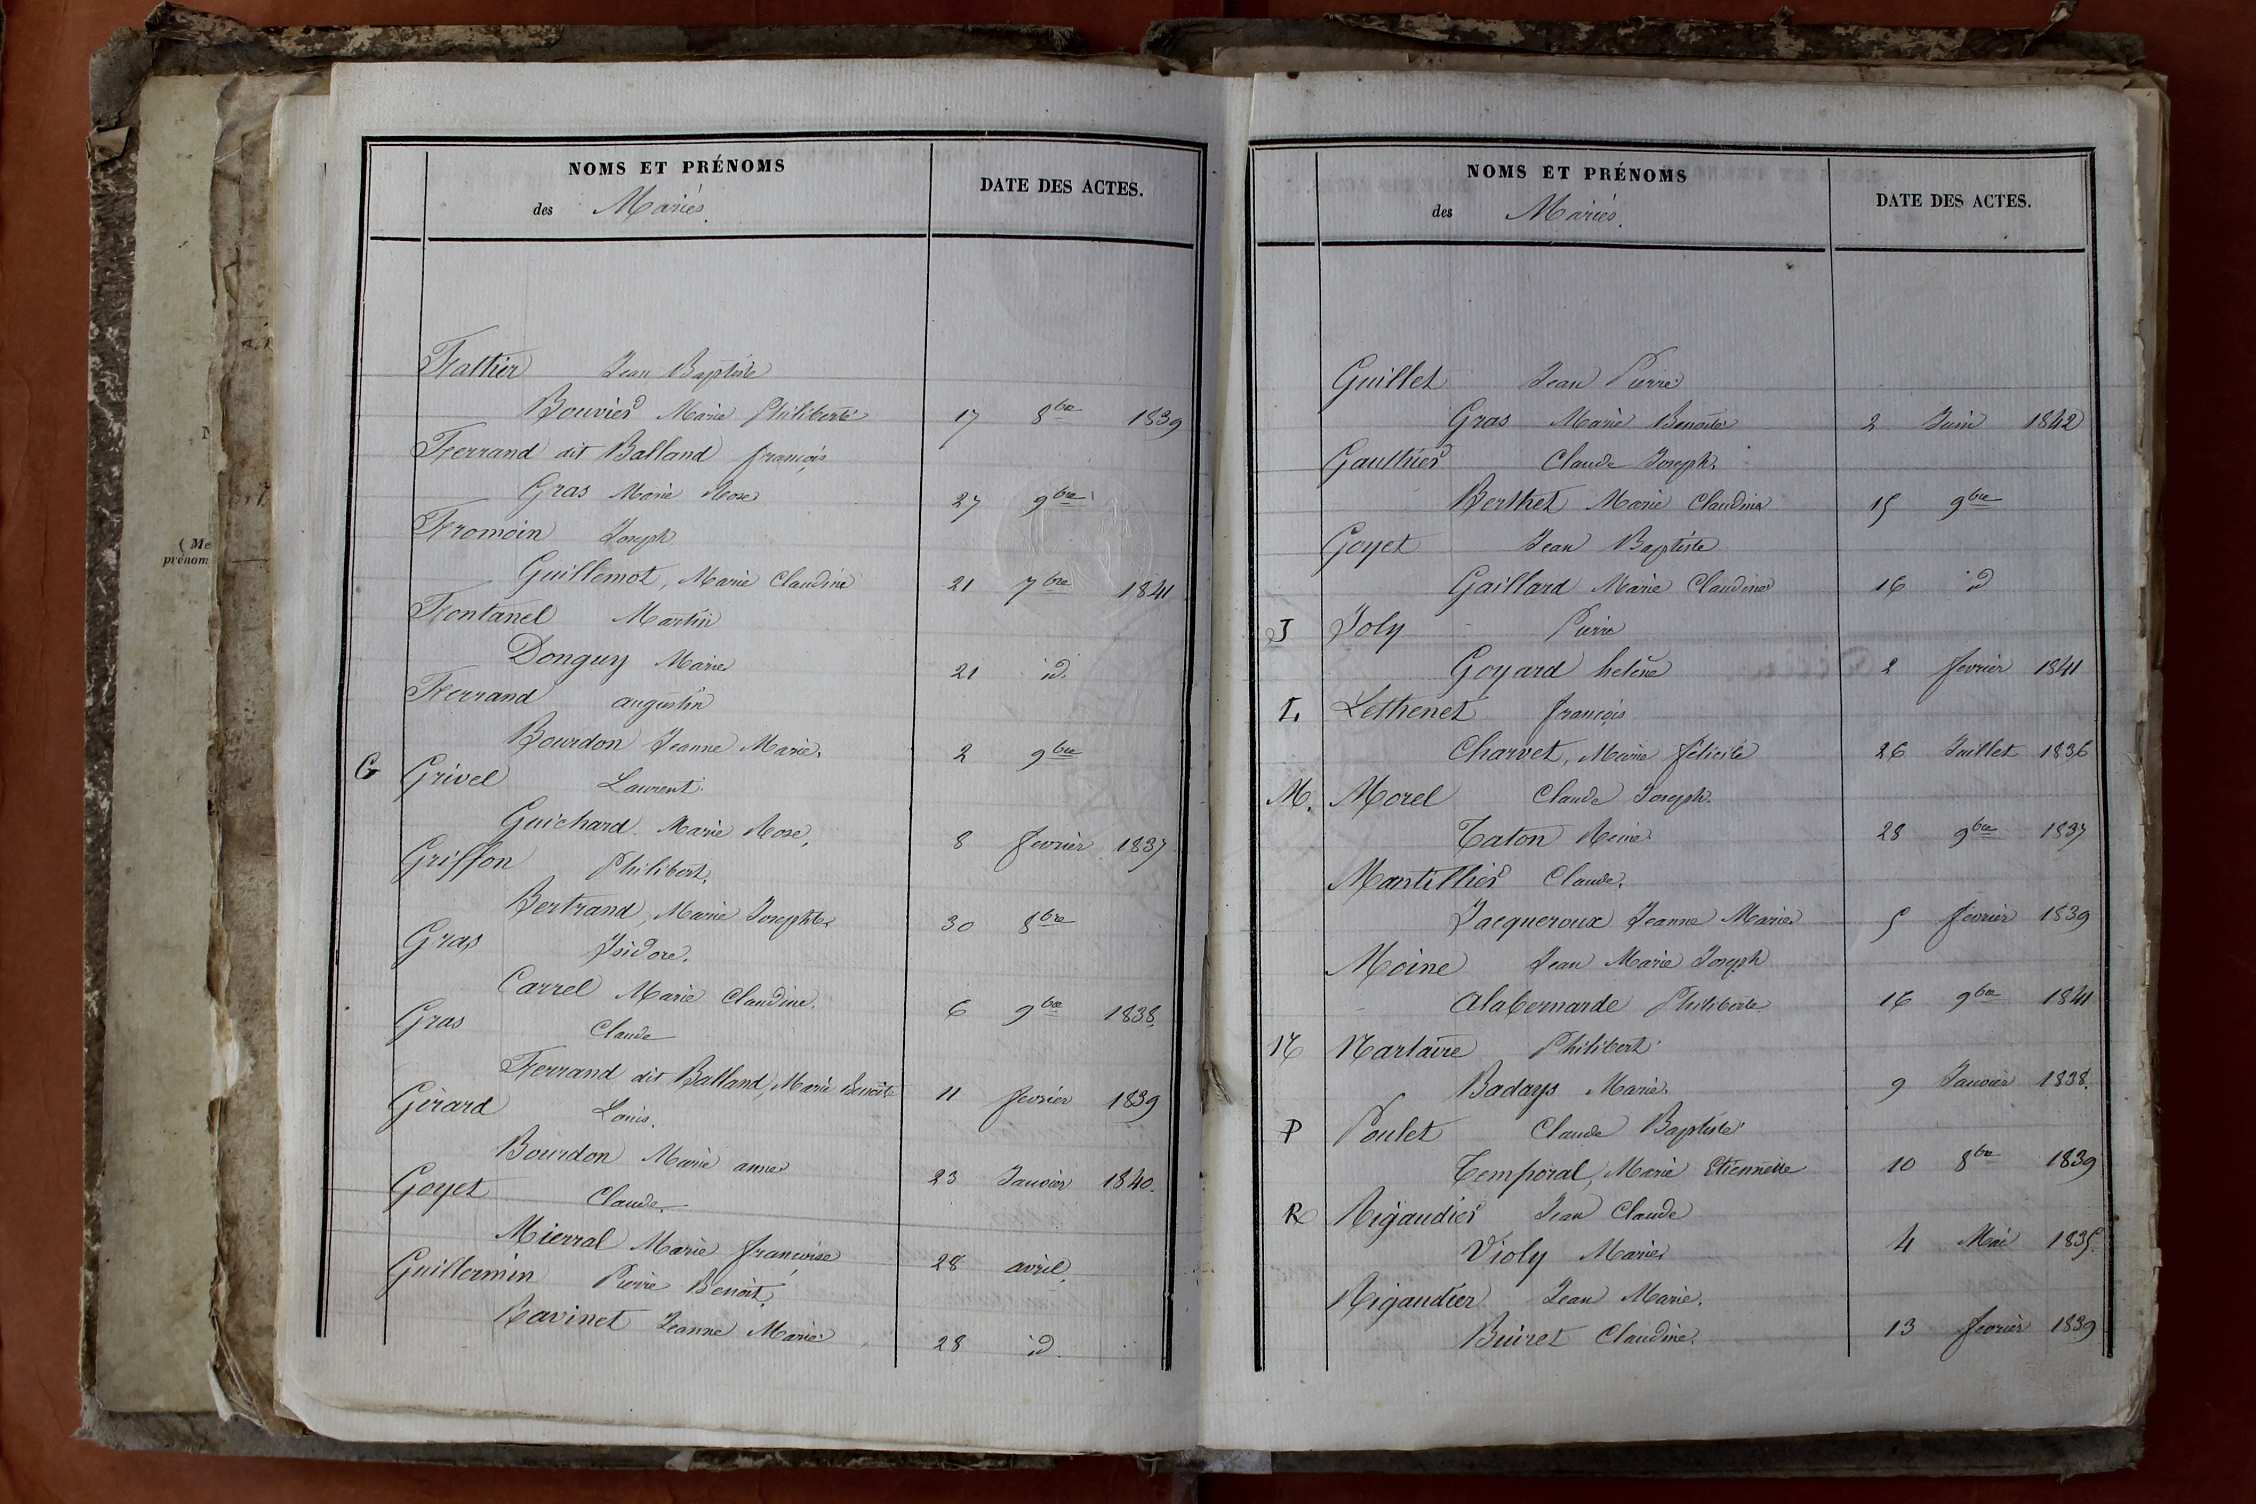 (Me
prénom
NOMS ET PRÉNOMS
des Mariés.
DATE DES ACTES.
Fattier Jean Baptiste
Bouvier Marie Philiberte 17 8bre 1839
Ferrand dit Balland françois
Gras Marie Rose 27 9bre
Fromoin Joseph
Guillemot, Marie Claudine 21 7bre 1841
Fontanel Martin
Donguy Marie 21 id.
Ferrand augustin
Bourdon Jeanne Marie. 2 9bre
G Grivel Laurent.
Guichard. Marie Rose, 8 fevrier 1837
Griffon Philibert.
Bertrand, Marie Josephte. 30 8bre
Gras Isidore.
Carrel Marie Claudine. 6 9bre 1838.
Gras Claude
Ferrand dit Balland, Marie Benoite 11 fevrier 1839
Gérard Louis.
Bourdon Marie anne 23 Janvier 1840.
Goyet Claude.
Mierral Marie françoise 28 avril.
Guillermin Pierre Benoit.
Ravinet Jeanne Marie 28 id.
NOMS ET PRÉNOMS
des Mariés.
DATE DES ACTES.
Guillet Jean Pierre
Gras Marie Benoite 2 Juin 1842
Gauthier Claude Joseph.
Berthet Marie Claudine 15 9bre
Goyet Jean Baptiste
Gaillard Marie Claudine 16 id
J Joly Pierre
Goyard helène 2 fevrier 1841
L. Lethenet françois
Charvet, Marie félicité 26 Juillet 1836
M. Morel Claude Joseph.
Taton Reine 28 9bre 1837
Mantillier Claude.
Jacqueroux Jeanne Marie 5 fevrier 1839
Moine Jean Marie Joseph
Alabernarde Philiberte 16 9bre 1841
N Nartaire Philibert
Badays Marie. 9 Janvier 1838.
P Poulet Claude Baptiste
Temporal, Marie Etiennette 10 8bre 1839
R Rigaudier Jean Claude
Violy Marie 4 Mai 1835.
Rigaudier Jean Marie.
Buiret Claudine. 13 fevrier 1839